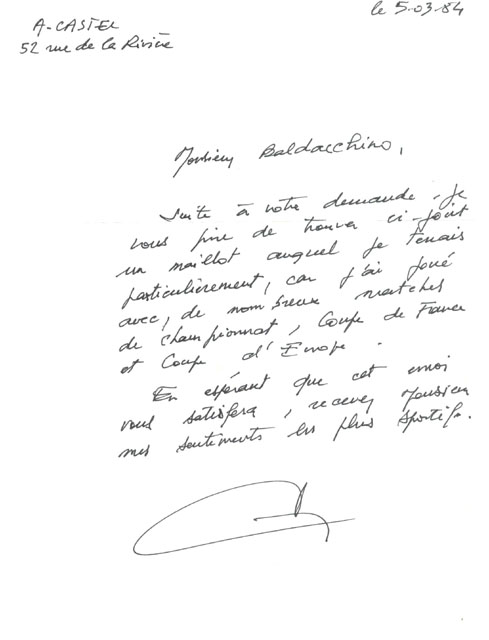 le 5-03-84
A-CASTEL
52 rue de la Rivière
Monsieur Baldacchino,
Suite à votre demande, je
vous prie de trouver ci-joint
un maillot auquel je tenais
particulièrement, car j'ai joué
avec, de nombreux matches
de championnat, Coupe de France
et Coupe d'Europe.
En espérant que cet envoi
vous satisfera, recevez Monsieur
mes sentiments les plus sportifs.